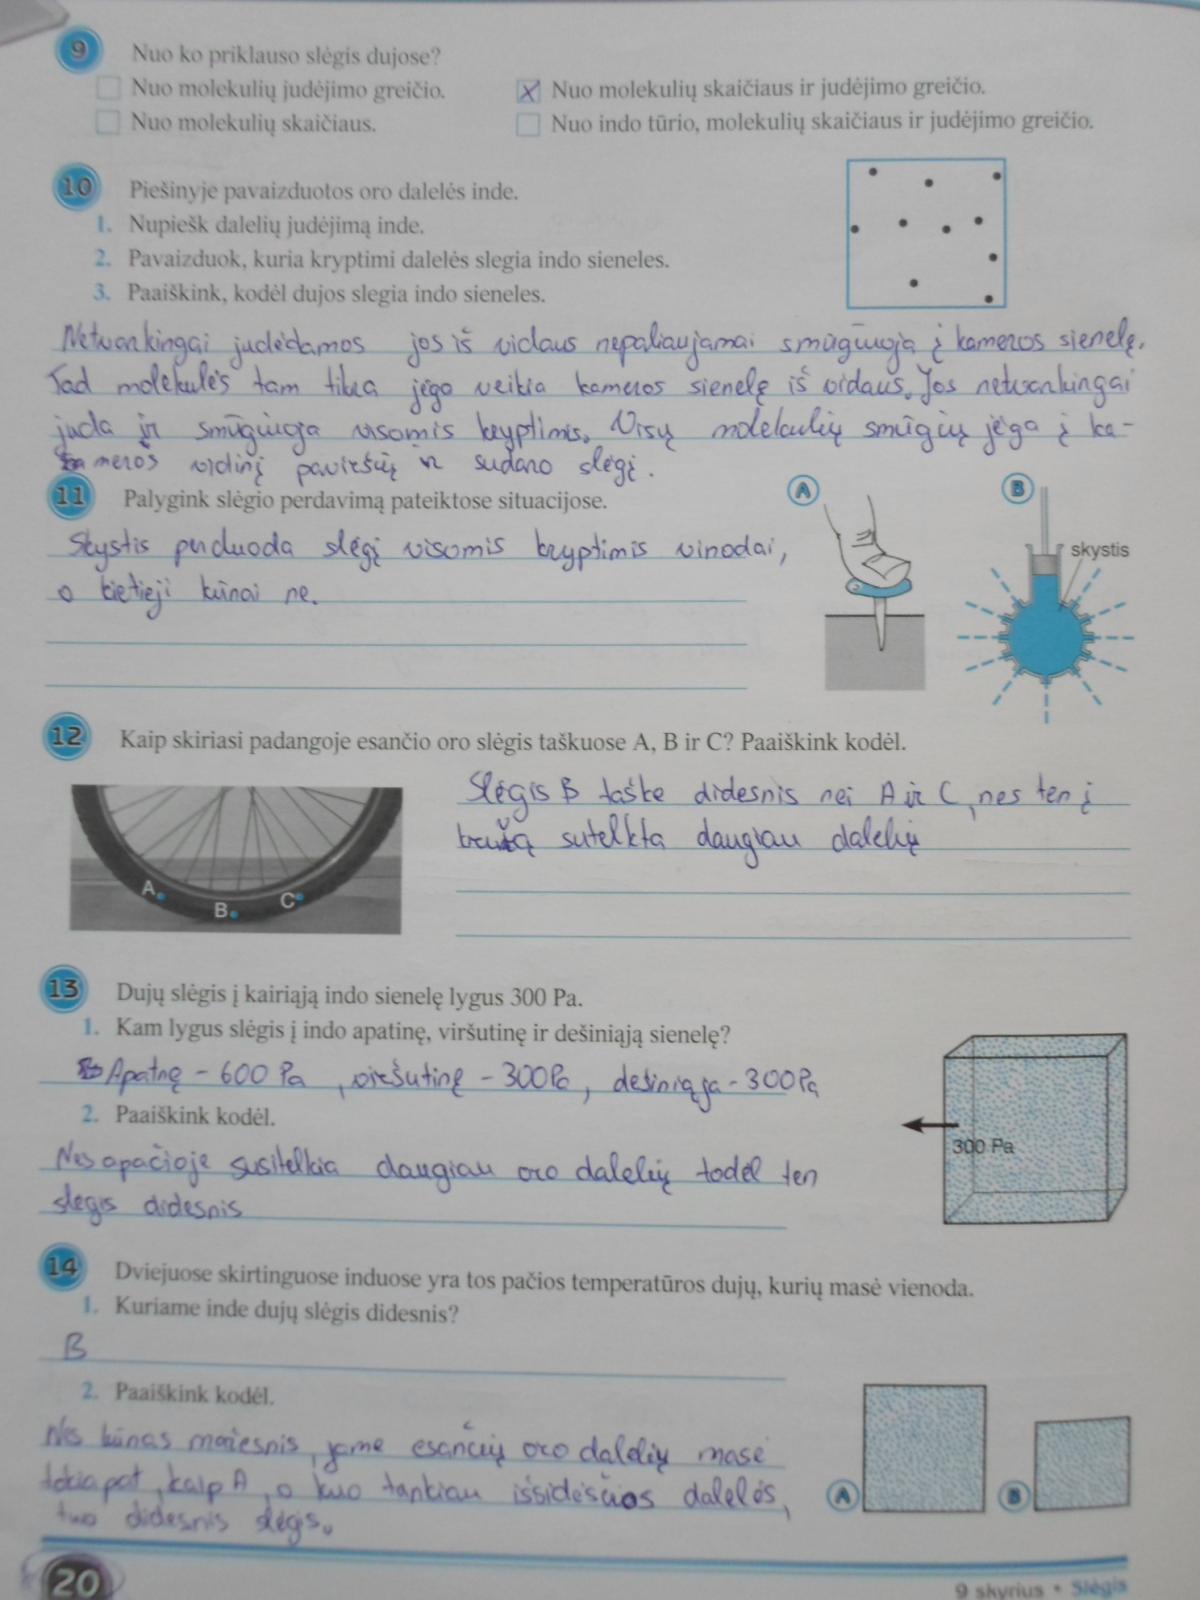 9 Nuo ko priklauso slėgis dujose?
Nuo molekulių judėjimo greičio.
X Nuo molekulių skaičiaus ir judėjimo greičio.
Nuo molekulių skaičiaus.
Nuo indo tūrio, molekulių skaičiaus ir judėjimo greičio.
10 Piešinyje pavaizduotos oro dalelės inde.
1. Nupiešk dalelių judėjimą inde.
2. Pavaizduok, kuria kryptimi dalelės slegia indo sieneles.
3. Paaiškink, kodėl dujos slegia indo sieneles.
Netvarkingai judėdamos jos iš vidaus nepaliaujamai smūgiuoja į kameros sienelę.
Tad molekulės tam tikra jėga veikia kameros sienelę iš vidaus. Jos netvarkingai
juda ir smūgiuoja visomis kryptimis. Visų molekulių smūgių jėga į ka-
meros vidinį paviršių ir sudaro slėgį.
11 Palygink slėgio perdavimą pateiktose situacijose.
Skystis perduoda slėgį visomis kryptimis vinodai,
o kietieji kūnai ne.
A
B
skystis
12 Kaip skiriasi padangoje esančio oro slėgis taškuose A, B ir C? Paaiškink kodėl.
Slėgis B taške didesnis nei A ir C, nes ten į
sutelkta daugiau dalelių
A
B
C
13 Dujų slėgis į kairiąją indo sienelę lygus 300 Pa.
1. Kam lygus slėgis į indo apatinę, viršutinę ir dešiniąją sienelę?
Apatnę - 600 Pa, viršutinę - 300Pa, dešiniąja - 300Pa
2. Paaiškink kodėl.
Nes apačioje susitelkia daugiau oro dalelių todėl ten
slėgis didesnis
300 Pa
14 Dviejuose skirtinguose induose yra tos pačios temperatūros dujų, kurių masė vienoda.
1. Kuriame inde dujų slėgis didesnis?
B
2. Paaiškink kodėl.
Nes kūnas mažesnis, jame esančių oro dalelių masė
tokia pat, kaip A, o kuo tankiau išsidėsčios dalelės,
tuo didesnis slėgis.
A
B
20
9 skyrius • Slėgis